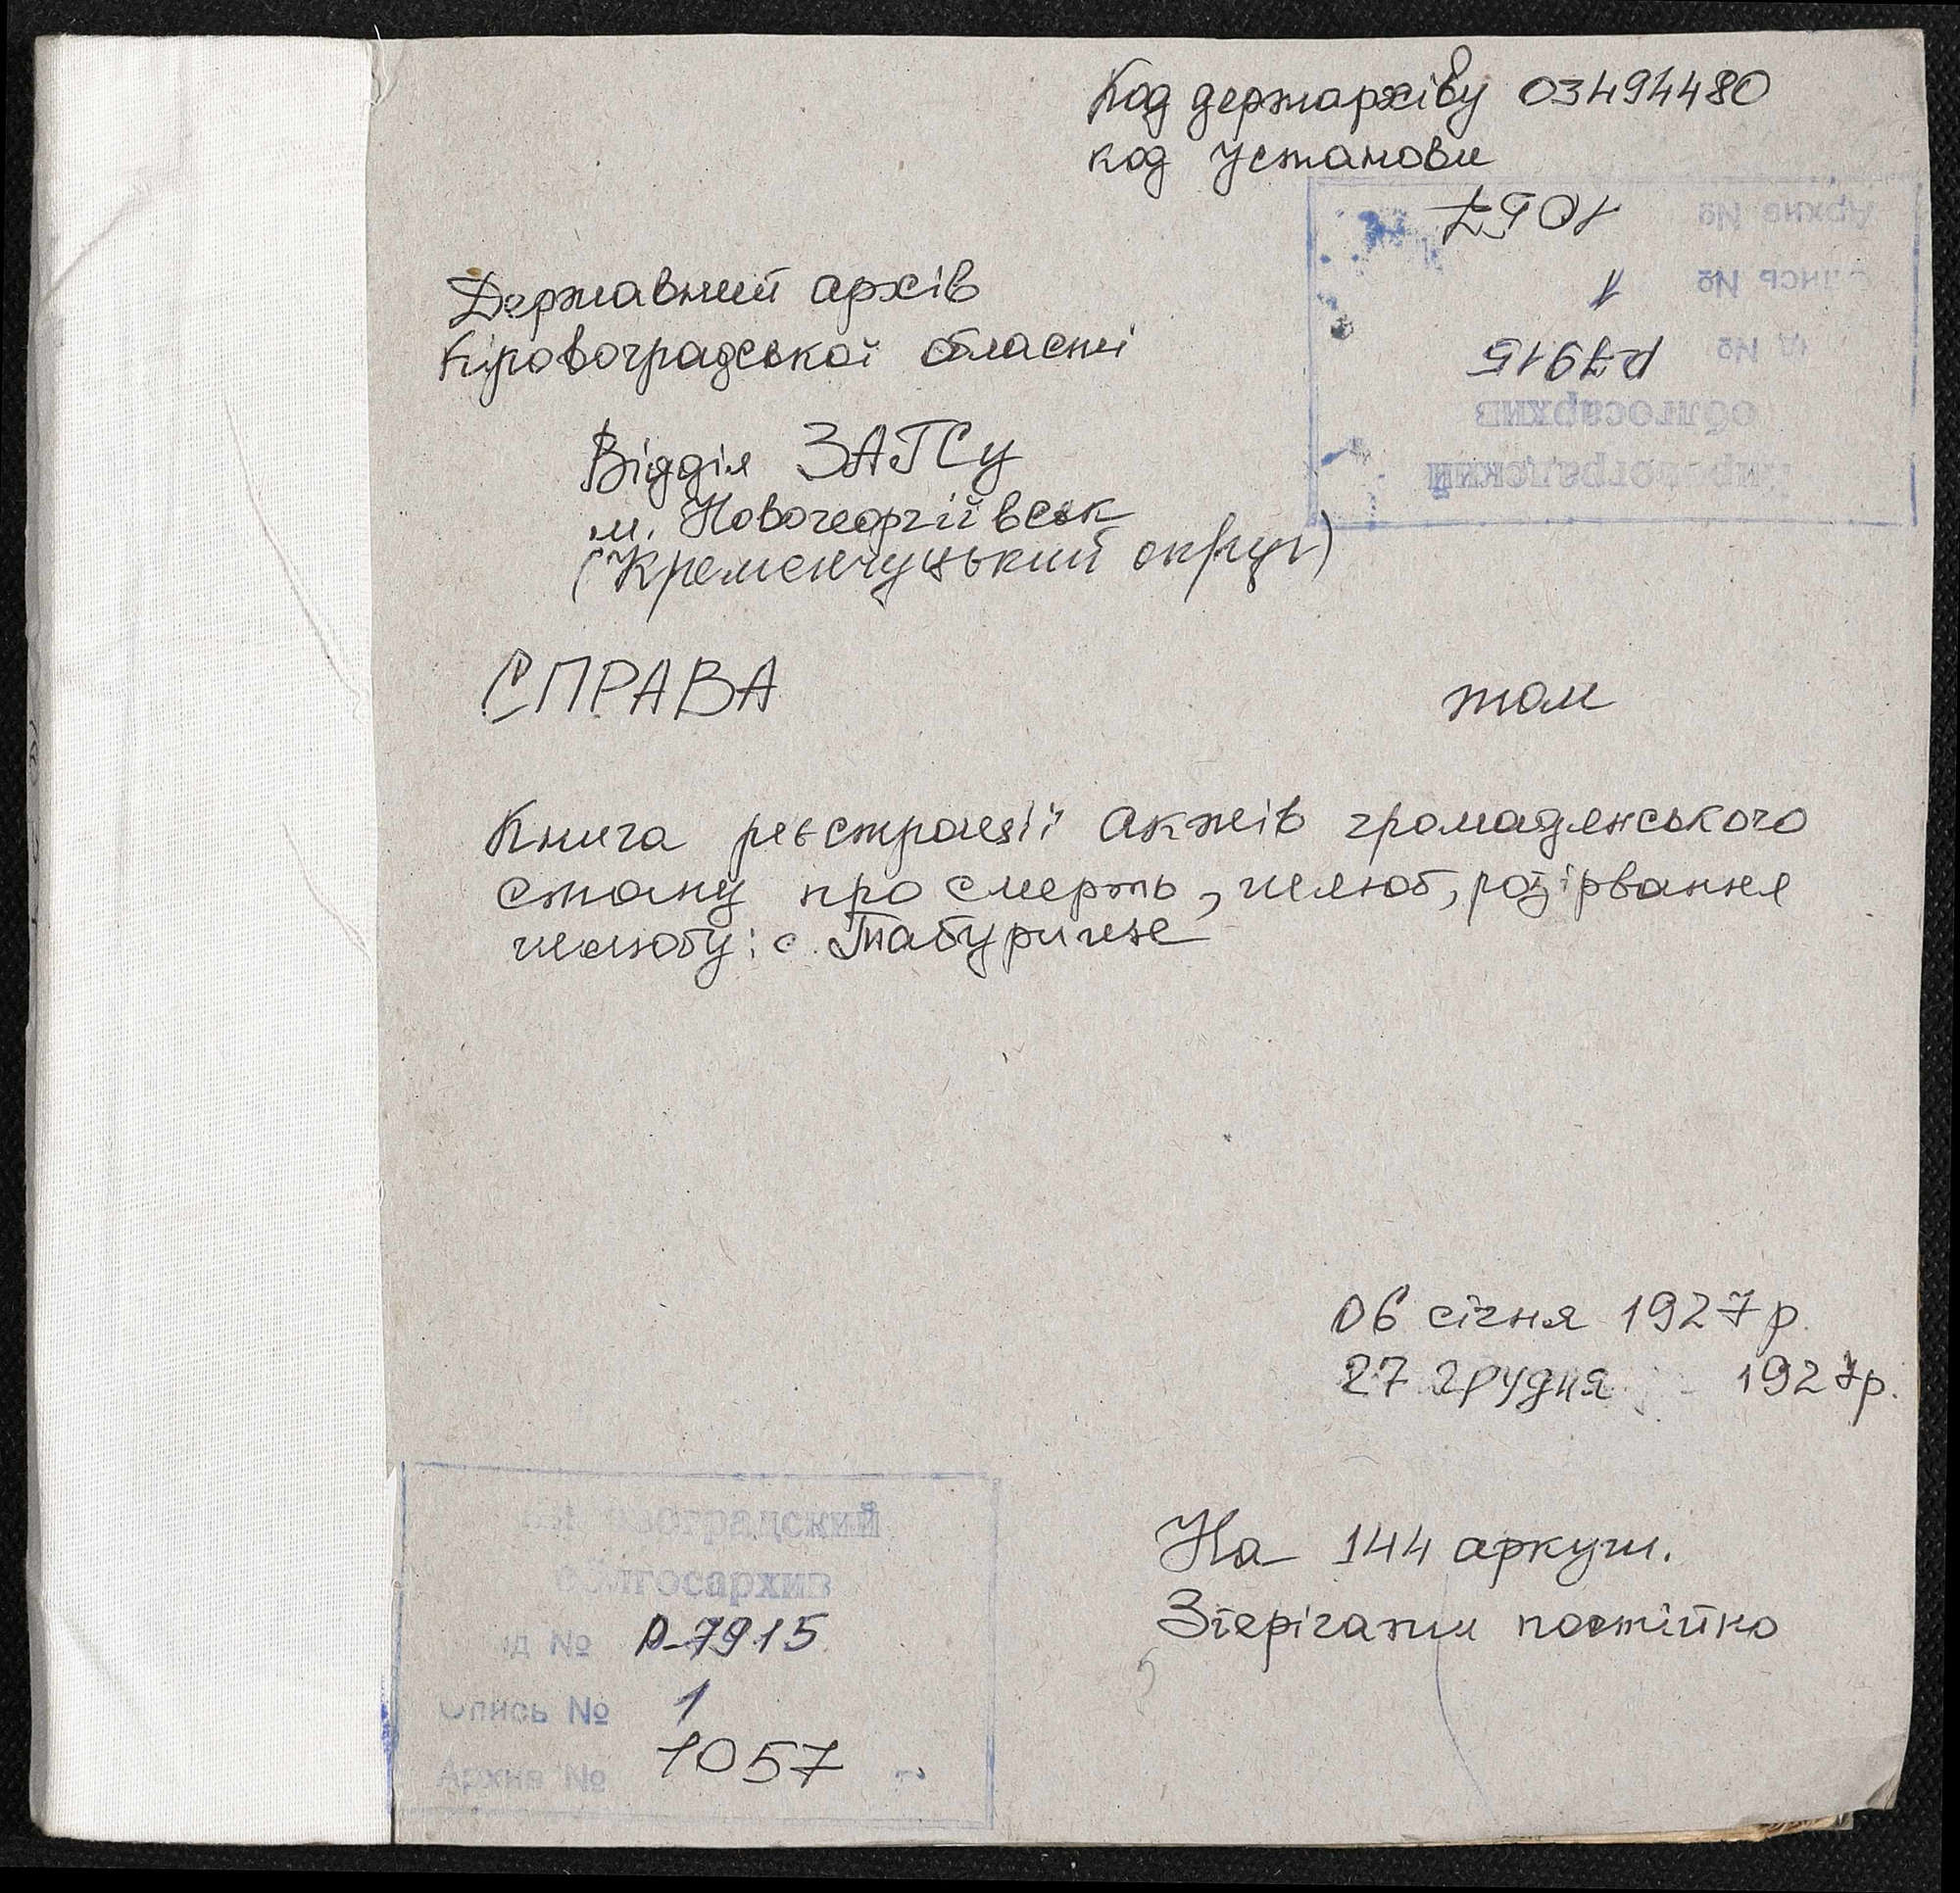 Код держархіву 03494480
код установи
Архив № 1057
Опись № 1
д № Р-7915
облгосархив
Кировоградский
Державний архів
Кіровоградської області
Відділ ЗАГСу
м. Новогеоргіївськ
(Кременчуцький округ)
СПРАВА том
Книга реєстрації актів громадянського
стану про смерть, шлюб, розірвання
шлюбу: с. Табурище
06 січня 1927 р.
27 грудня 1927р.
На 144 аркуш.
Зберігати постійно
Кировоградский
облгосархив
д № Р-7915
Опись № 1
Архив № 1057